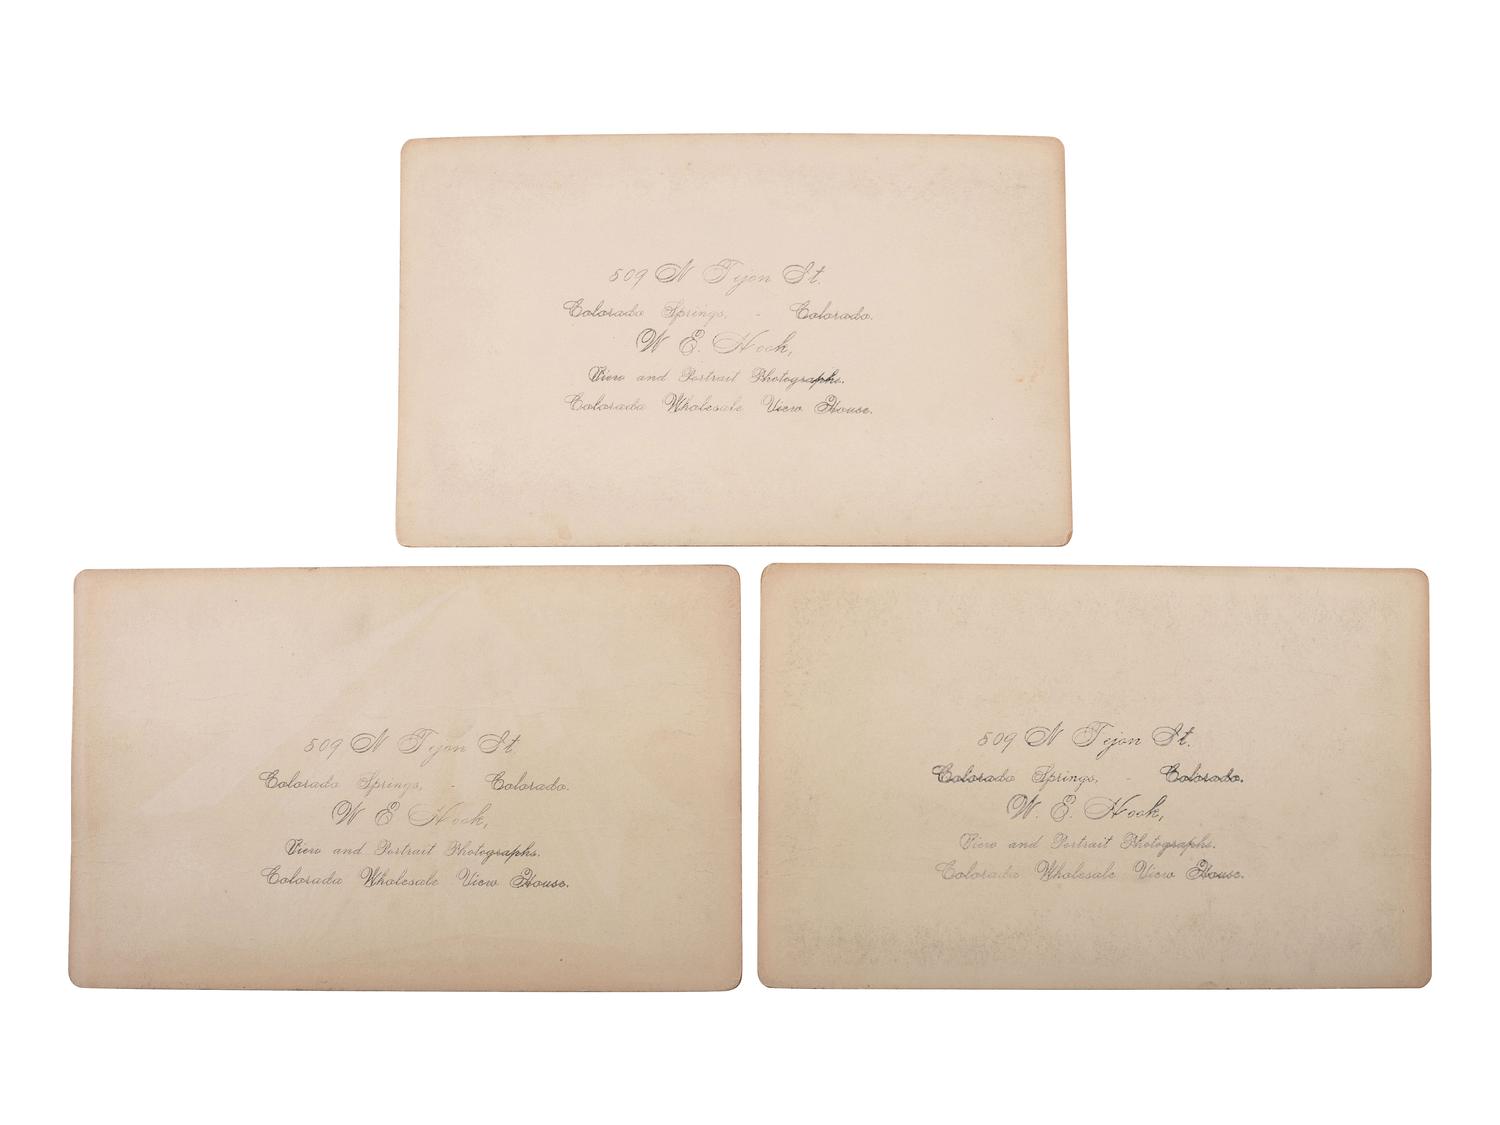 509 N Tejon St.
Colorado Springs, - Colorado.
W E. Hook,
View and Portrait Photographs.
Colorado Wholesale View House.
509 N Tejon St.
Colorado Springs, - Colorado.
W E Hook,
View and Portrait Photographs.
Colorado Wholesale View House.
509 N Tejon St.
Colorado Springs, - Colorado.
W. E. Hook,
View and Portrait Photographs.
Colorado Wholesale View House.